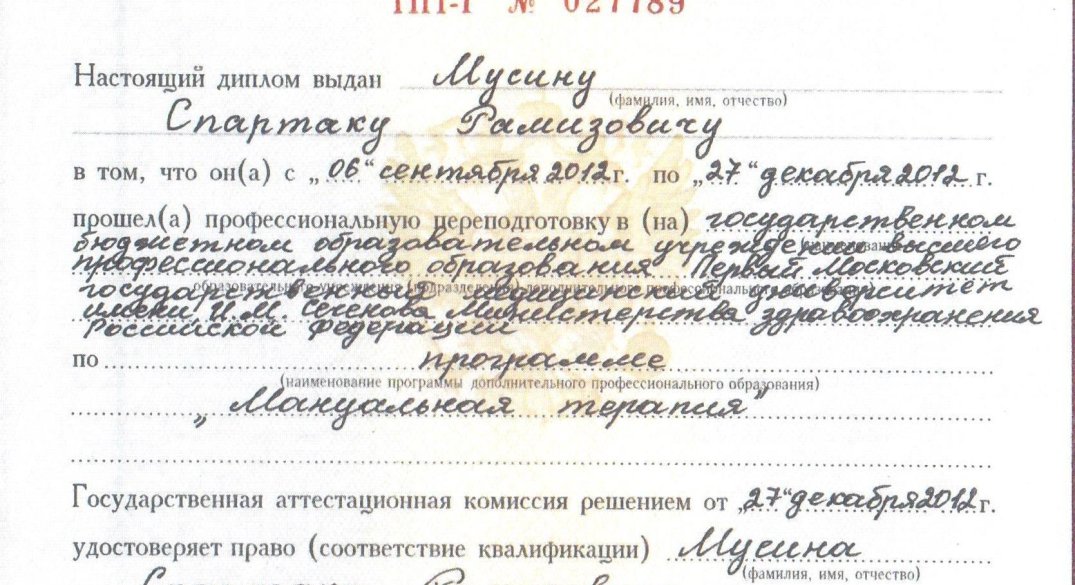 ПП-I № 027789
Настоящий диплом выдан Мусину
(фамилия, имя, отчество)
Спартаку Рамизовичу
в том, что он(а) с „06“ сентября 2012г. по „27“ декабря 2012 г.
прошел(а) профессиональную переподготовку в (на) государственном
бюджетном образовательном учреждении высшего
профессионального образования Первый Московский
образовательного учреждения (подразделения) дополнительного профессионального образования)
государственный медицинский университет
имени И.М. Сеченова Министерства здравоохранения
Российской Федерации
по программе
(наименование программы дополнительного профессионального образования)
„Мануальная терапия“
Государственная аттестационная комиссия решением от „27“ декабря 2012 г.
удостоверяет право (соответствие квалификации) Мусина
(фамилия, имя, отчество)